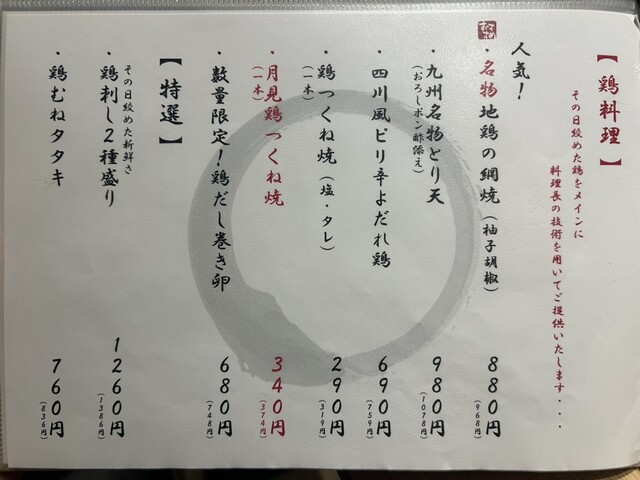 【鶏料理】
その日絞めた鶏をメインに
料理長の技術を用いてご提供いたします・・・
人気！
・名物地鶏の網焼（柚子胡椒） 880円（968円）
・九州名物とり天 980円（1078円）
（おろしポン酢添え）
・四川風ピリ辛よだれ鶏 690円（759円）
・鶏つくね焼（塩・タレ） 290円（319円）
（一本）
・月見鶏つくね焼 340円（374円）
（一本）
・数量限定！鶏だし巻き卵 680円（748円）
【特選】
その日絞めた新鮮さ
・鶏刺し2種盛り 1260円（1386円）
・鶏むねタタキ 760円（836円）